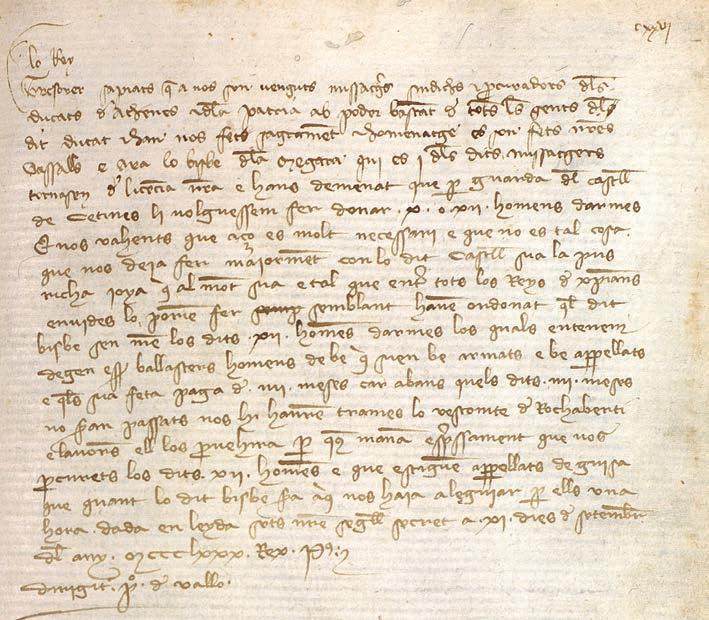 cxxvi
lo Rey
Tresorer sapiats q a nos son venguts missatgs sindichs e pcuradors dls
ducats d Athenes e dla patria ab poder bastat d tots les gents dls
dit ducat e han nos fets sagramet e homenatge es xn fets nres
vassalls e ara lo bisbe dla Megara qui es j dls dits missatgers
tornasen d licencia nra e hans demenat que p guarda dl castll
de Cetines li volguessem fer donar .x. o .xii. homens darmes
E nos vahents que aço es molt necessari e que no es tal cosa
que nos deia fer maiormet con lo dit castll sia la pus
richa joya q al mot sia e tal que entr tots los Reys d xpians
envides lo porien fer semblant havem ordonat ql dit
bisbe sen me los dits .xii. homes darmes los quals entenem
degen essr ballasters homens de be q sien be armats e be appellats
e qls sia feta paga d .iiii. meses car abans quels dits .iiii. meses
no sran passats nos hi haurem trames lo vescomte d Rochaberti
e lavors ell los pvehira p que mana expssament que vos
pcurets los dits .xii. homes e que estiguen appellats de guisa
que quant lo dit bisbe sra aqi nos haia a leguiar p ells una
hora. dada en leyda sots nre segll secret a .xi. dies d setembr
dl any .Mccclxxx. Rex .P.
dirigit. P. d vallo.